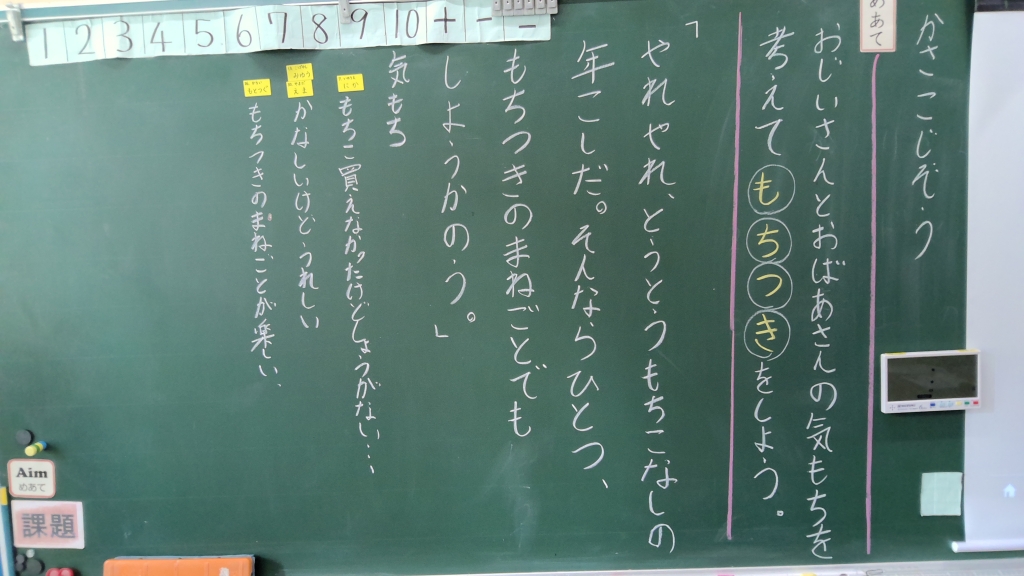 1 2 3 4 5 6 7 8 9 10 + - =
めあて
かさこじぞう
おじいさんとおばあさんの気もちを
考えてもちつきをしよう。
「やれやれ、とうとうもちこなしの
年こしだ。そんならひとつ、
もちつきのまねごとでも
しようかのう。」
気もち
もちこ買えなかったけどしょうがない…
かなしいけど、うれしい
もちつきのまねごとが楽しい、
Aim
めあて
課題